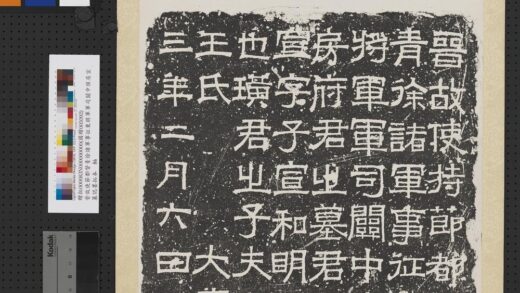 晉故使持節都
青徐諸軍事征
將軍軍司關中
房府君之墓君
宣字子宣和明
也 君之子夫
王氏 大
三年二月六日
Kodak